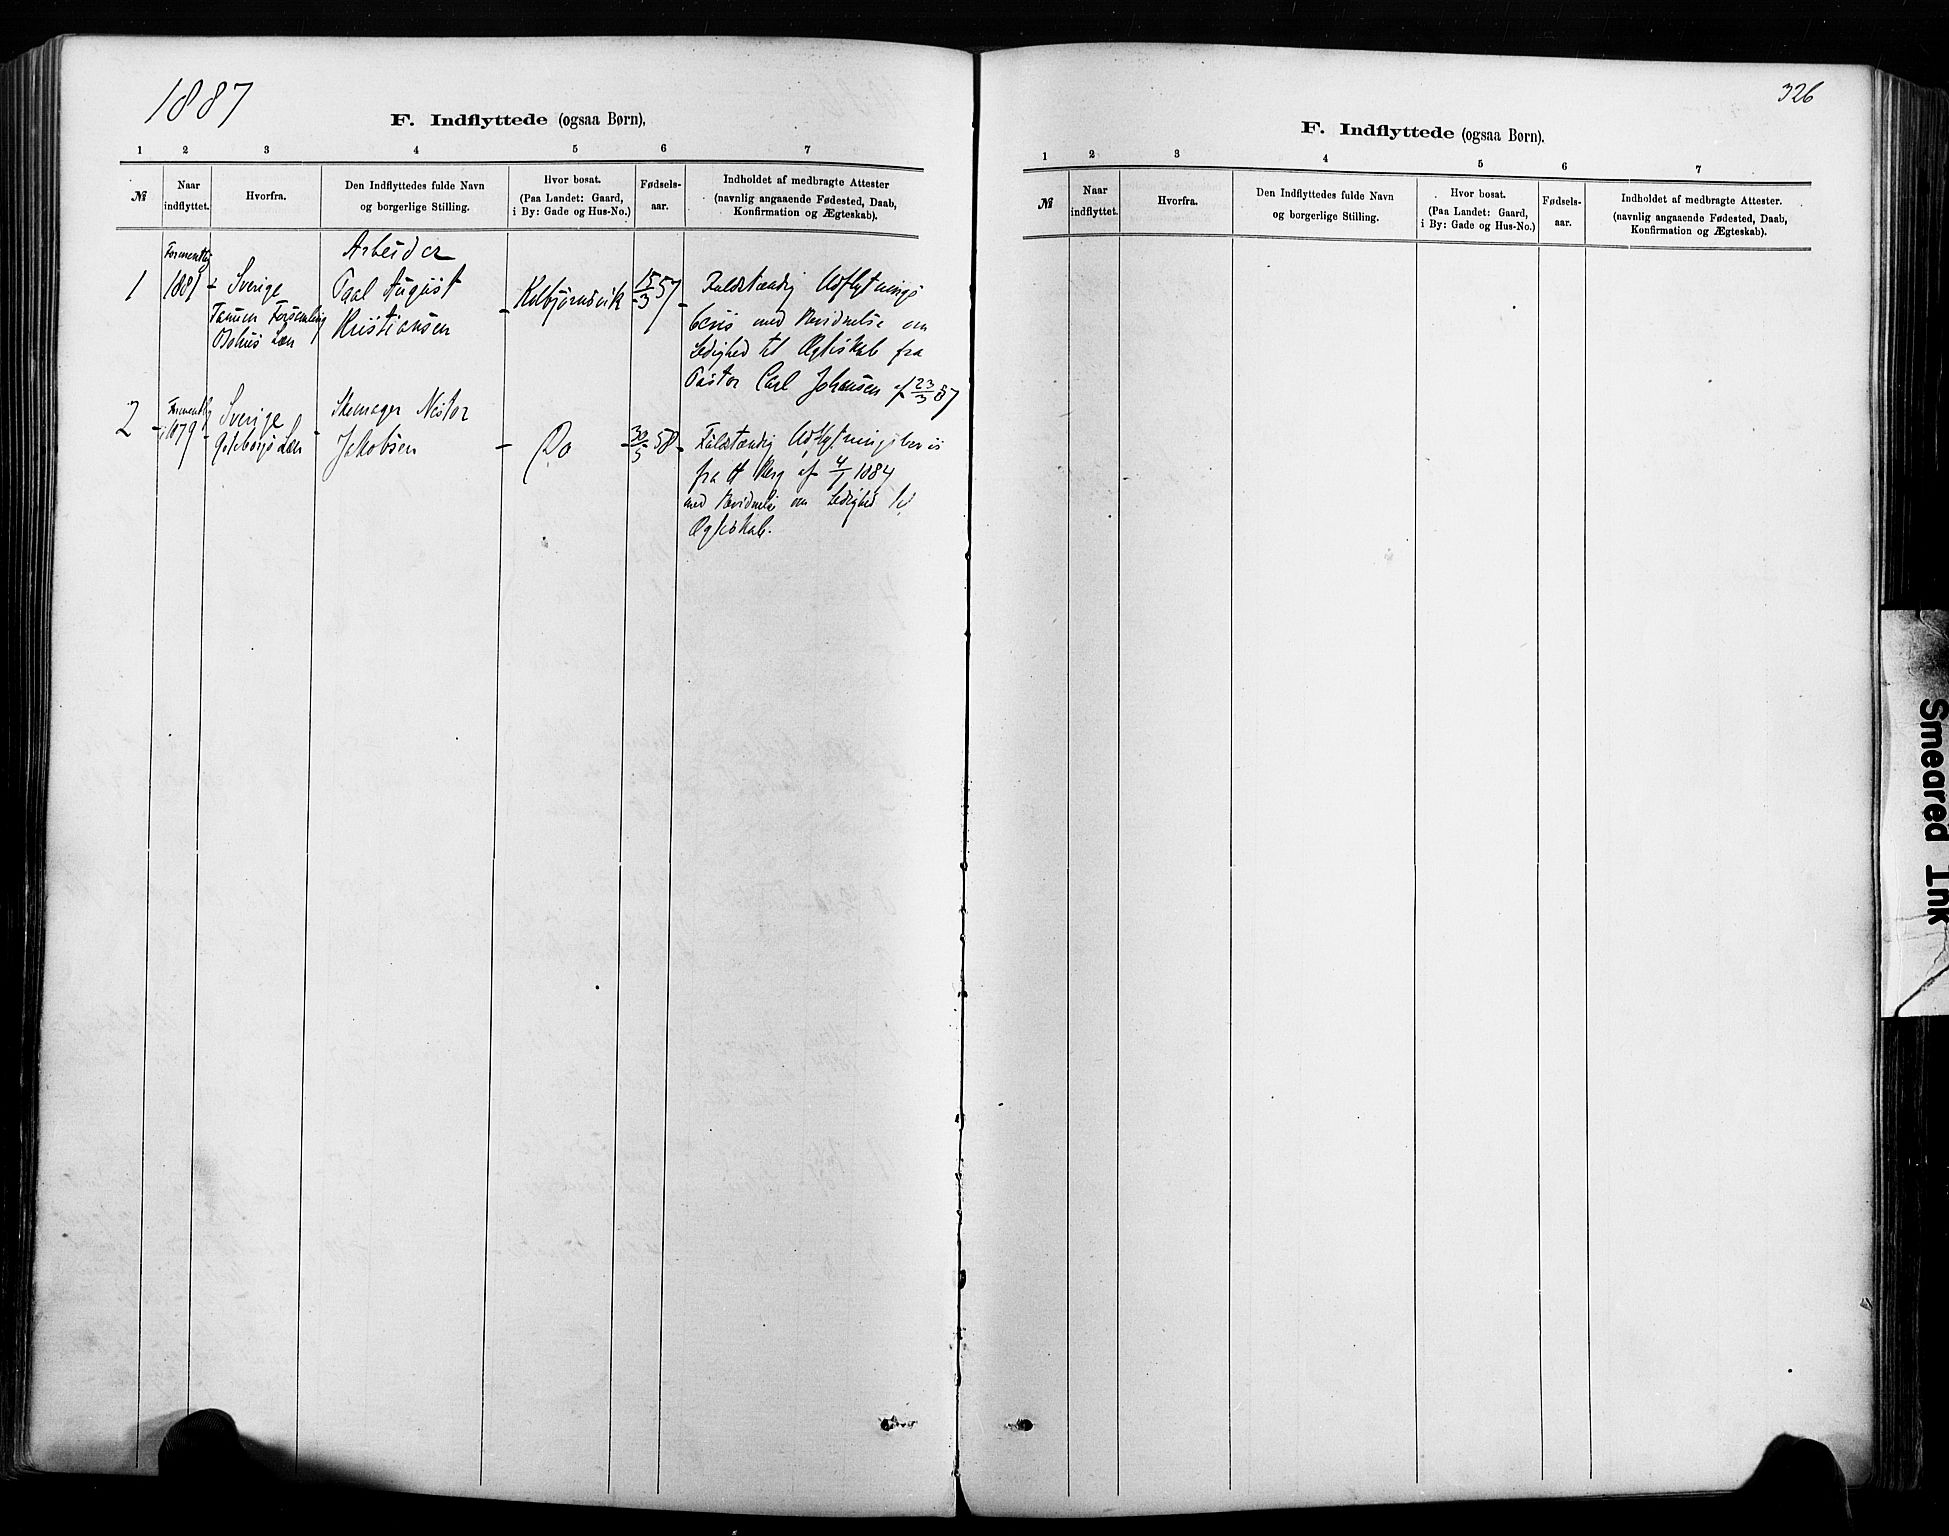 1887
F. Indflyttede (ogsaa Børn).
1 2 3 4 5 6 7
№
Naar
indflyttet.
Hvorfra.
Den Indflyttedes fulde Navn
og borgerlige Stilling.
Hvor bosat.
(Paa Landet: Gaard,
i By: Gade og Hus-No.)
Fødsels-
aar.
Indholdet af medbragte Attester
(navnlig angaaende Fødested, Daab,
Konfirmation og Ægteskab).
1
Formentlig
1881
Sverige
Tanum Forsamling
Bohus Læn
Arbeider
Paal August
Kristiansen
Kolbjørnsvik
15/3 57
Fuldstændig Udflytnings
bevis med Bevidnelse om
Ledighed til Ægteskab fra
Pastor Carl Johansen af 23/3 87
2
Formentlig
1879
Sverige
Gøteborgs Læn
Skomager Nestor
Jakobsen
Do
30/5 58
Fuldstændig Udflytningsbevis
fra H Berg af 4/1 1884
med Bevidnelse om Ledighed til
Ægteskab.
326
F. Indflyttede (ogsaa Børn).
1 2 3 4 5 6 7
№
Naar
indflyttet.
Hvorfra.
Den Indflyttedes fulde Navn
og borgerlige Stilling.
Hvor bosat.
(Paa Landet: Gaard,
i By: Gade og Hus-No.)
Fødsels-
aar.
Indholdet af medbragte Attester.
(navnlig angaaende Fødested, Daab,
Konfirmation og Ægteskab).
Smeared Ink